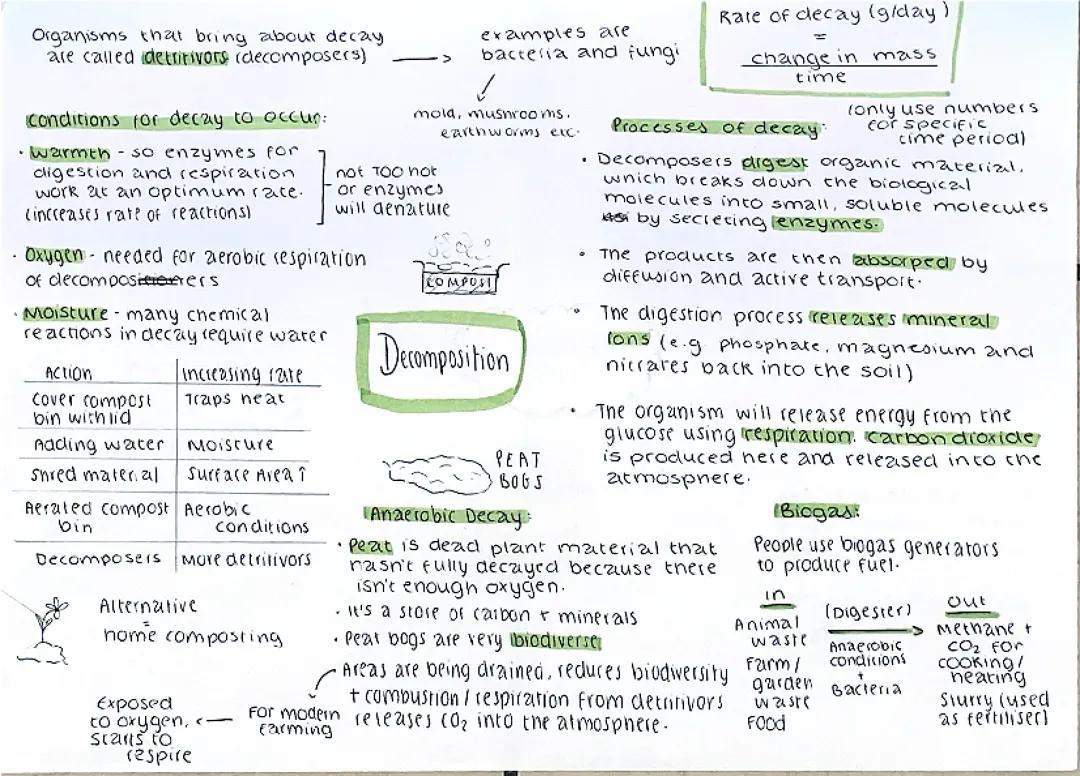 Organisms that bring about decay
are called detritivors (decomposers)
examples are
bacteria and fungi
mold, mushrooms,
earthworms etc.
Rate of decay (g/day)
=
change in mass
time
(only use numbers
for specific
time period)
Conditions for decay to occur:
• Warmth - so enzymes for
digestion and respiration
work at an optimum rate.
(increases rate of reactions)
not TOO hot
or enzymes
will denature
• Oxygen - needed for aerobic respiration
of decomposers
• Moisture - many chemical
reactions in decay require water
Action Increasing rate
Cover compost Traps heat
bin with lid
Adding water Moisture
Shred material Surface Area ↑
Aerated compost Aerobic
bin conditions
Decomposers More detritivors
Alternative
=
home composting
COMPOST
Decomposition
PEAT
BOGS
Anaerobic Decay:
• Peat is dead plant material that
hasn't fully decayed because there
isn't enough oxygen.
• It's a store of carbon + minerals
• Peat bogs are very biodiverse
Areas are being drained, reduces biodiversity
+ combustion / respiration from detritivors
releases CO2 into the atmosphere.
For modern
farming
Exposed
to oxygen,
starts to
respire
Processes of decay:
• Decomposers digest organic material,
which breaks down the biological
molecules into small, soluble molecules
by secreting enzymes.
• The products are then absorped by
diffusion and active transport.
• The digestion process releases mineral
ions (e.g. phosphate, magnesium and
nitrates back into the soil)
• The organism will release energy from the
glucose using respiration. Carbon dioxide
is produced here and released into the
atmosphere.
Biogas:
People use biogas generators
to produce fuel.
in
Animal
waste
Farm/
garden
waste
Food
(Digester)
Anaerobic
conditions
+
Bacteria
out
Methane +
CO2 for
cooking/
heating
Slurry (used
as fertiliser)